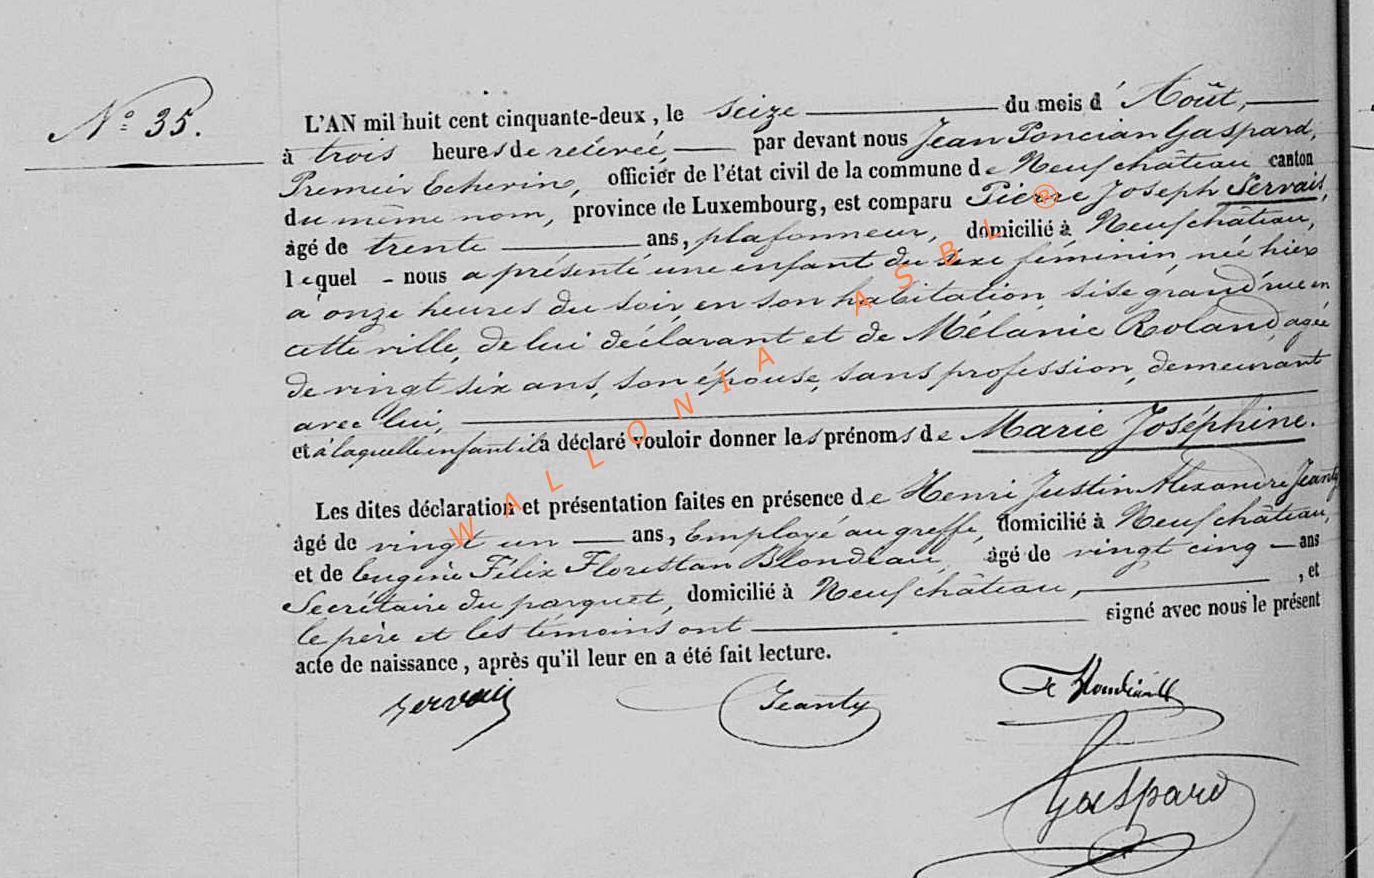 N° 35.
L'AN mil huit cent cinquante-deux, le seize du mois d'Août,
à trois heures de relevée, par devant nous Jean Poncian Gaspard,
Premier Echevin, officier de l'état civil de la commune de Neufchâteau canton
du même nom, province de Luxembourg, est comparu Pierre Joseph Servais,
âgé de trente ans, plafonneur, domicilié à Neufchâteau,
lequel - nous a présenté une enfant du sexe féminin, née hier
à onze heures du soir, en son habitation, sise grand'rue en
cette ville, de lui déclarant et de Mélanie Roland, agée
de vingt six ans, son épouse, sans profession, demeurant
avec lui,
et à laquelle enfant il a déclaré vouloir donner les prénoms de Marie Joséphine.
Les dites déclaration et présentation faites en présence de Henri Justin Alexandre Jeanty
âgé de vingt un ans, Employé au greffe, domicilié à Neufchâteau,
et de Eugène Félix Florestan Blondeau, âgé de vingt cinq ans
Secrétaire du parquet, domicilié à Neufchâteau, , et
le père et les témoins ont signé avec nous le présent
acte de naissance, après qu'il leur en a été fait lecture.
Servais Jeanty
Gaspard
WALLONIA ASBL ®